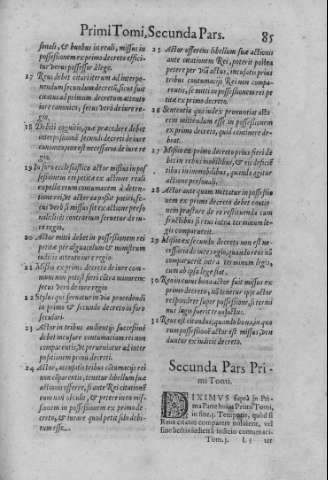 Primi Tomi, Secunda Pars. 85
sonali, & bonbus in reali, missus in
possessionem ex primo decreto effici-
tur verus possessor à lege.
17 Reus debet citari iterum ad interpo-
nendum secundum decretũ, sicut fuit
citatus ad primum decretum attento
iure canonico, secus verò de iure re-
gio.
18 Debiti cognitio, quæ præcedere debet
interpositionẽ secundi decreti de iure
canonico, non est necessaria de iure re-
gio.
19 In foro ecclesiastico actor missus in pos-
sessionem ex petitæ ex actione reali
expellit reum contumacem à deten-
tione rei, se actore ea postea potiri, se-
cus verò si missus fit ex actione perso-
nali, sicuti contrarium seruetur de iu-
re regio.
20 Actor mitti debet in possessionem rei
petitæ per alguacelum & ministrum
iudicis attento iure regio
21 Missio ex primo decreto de iure com-
muni non potest fieri citra ministros
secus verò de iure regio
22 Stylus qui seruatur in via procedendi
in primo & secundo decreto in foro
seculari.
23 Actor in tribus audientijs successiuè
debet incusare contumaciam rei non
comparentis, vt peruniatur ad inter
positionem primi decreti.
24 Actor, accusatis tribus cõtumacijs rei
non cõparentis, tenetur libellum suæ
actionis offerre, si ante Rei citationem
non obtulit, & petere se mitti in
possessionem ex primo decre-
to, & iurare quod petit sibi debi-
tum esse.
25 Actor offerens libellum suæ actionis
ante citationem Rei, poterit postea
petere per viã actus, incusatis prius
tribus contumacijs Rei non compa-
rentis, se mitti in possessionem rei pe-
titæ ex primo decreto.
26 Sententia qui index pronuntiat acto
rem mittendum esse in possessionem
ex primo decreto, quid continere de-
beat.
27 Missio ex primo decreto prius fieri de
bet in rebus mobilibus, & eis deficiẽ
tibus in immobilibus, quando agitur
actione personali.
28 Actor ante quam mittatur in possessio
nem ex primi decreti debet cautio-
nem præstare de re restituenda cum
fructibus si reus intra terminum le-
gis comparuerit.
29 Missio ex secundo decreto non est ne-
cessaria de iure regio, quãto reus nõ
comparuerit intra terminum legis,
cum ab ipsa lege fiat.
30 Reconuentione actor fuit missus ex
primo decreto, nõ tenetur ipse actor
respondere super possessione, si termi
nus legis fuerit transactus.
31 Reus est citandus, quando bona, in quo
rum possessione actor est missus, ven-
duntur ex secundo decreto.
Secunda Pars Pri-
mi Tomi.
DIXIMVS suprà in Pri-
ma Parte huius Primi Tomi,
in fine 5. Temporis, quòd si
Reus citatus comparere noluerit, vel
fine licentia iudicis à iudicio contumaci-
Tom. j. L 5 ter